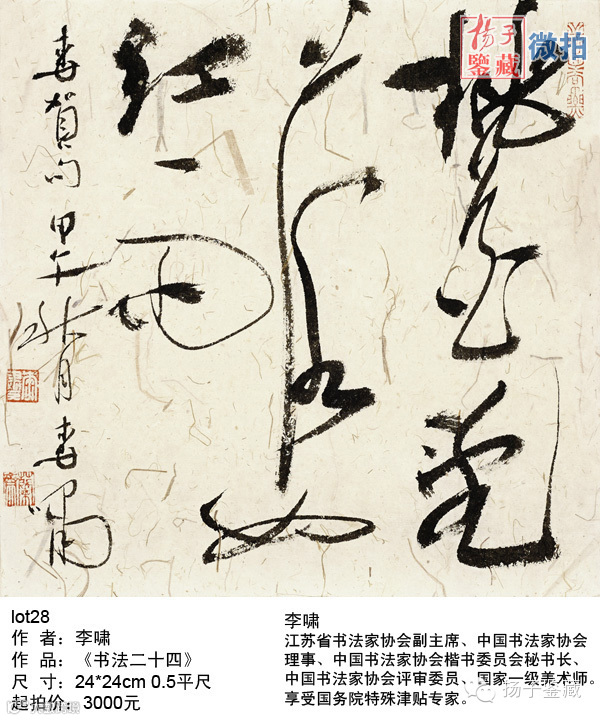 扬子
鑒藏
微拍
桃花乱
落如
红雨
李贺句甲午秋月李啸
lot28
作 者：李啸
作 品：《书法二十四》
尺 寸：24*24cm 0.5平尺
起拍价：3000元
李啸
江苏省书法家协会副主席、中国书法家协会
理事、中国书法家协会楷书委员会秘书长、
中国书法家协会评审委员、国家一级美术师。
享受国务院特殊津贴专家。
扬子鉴藏